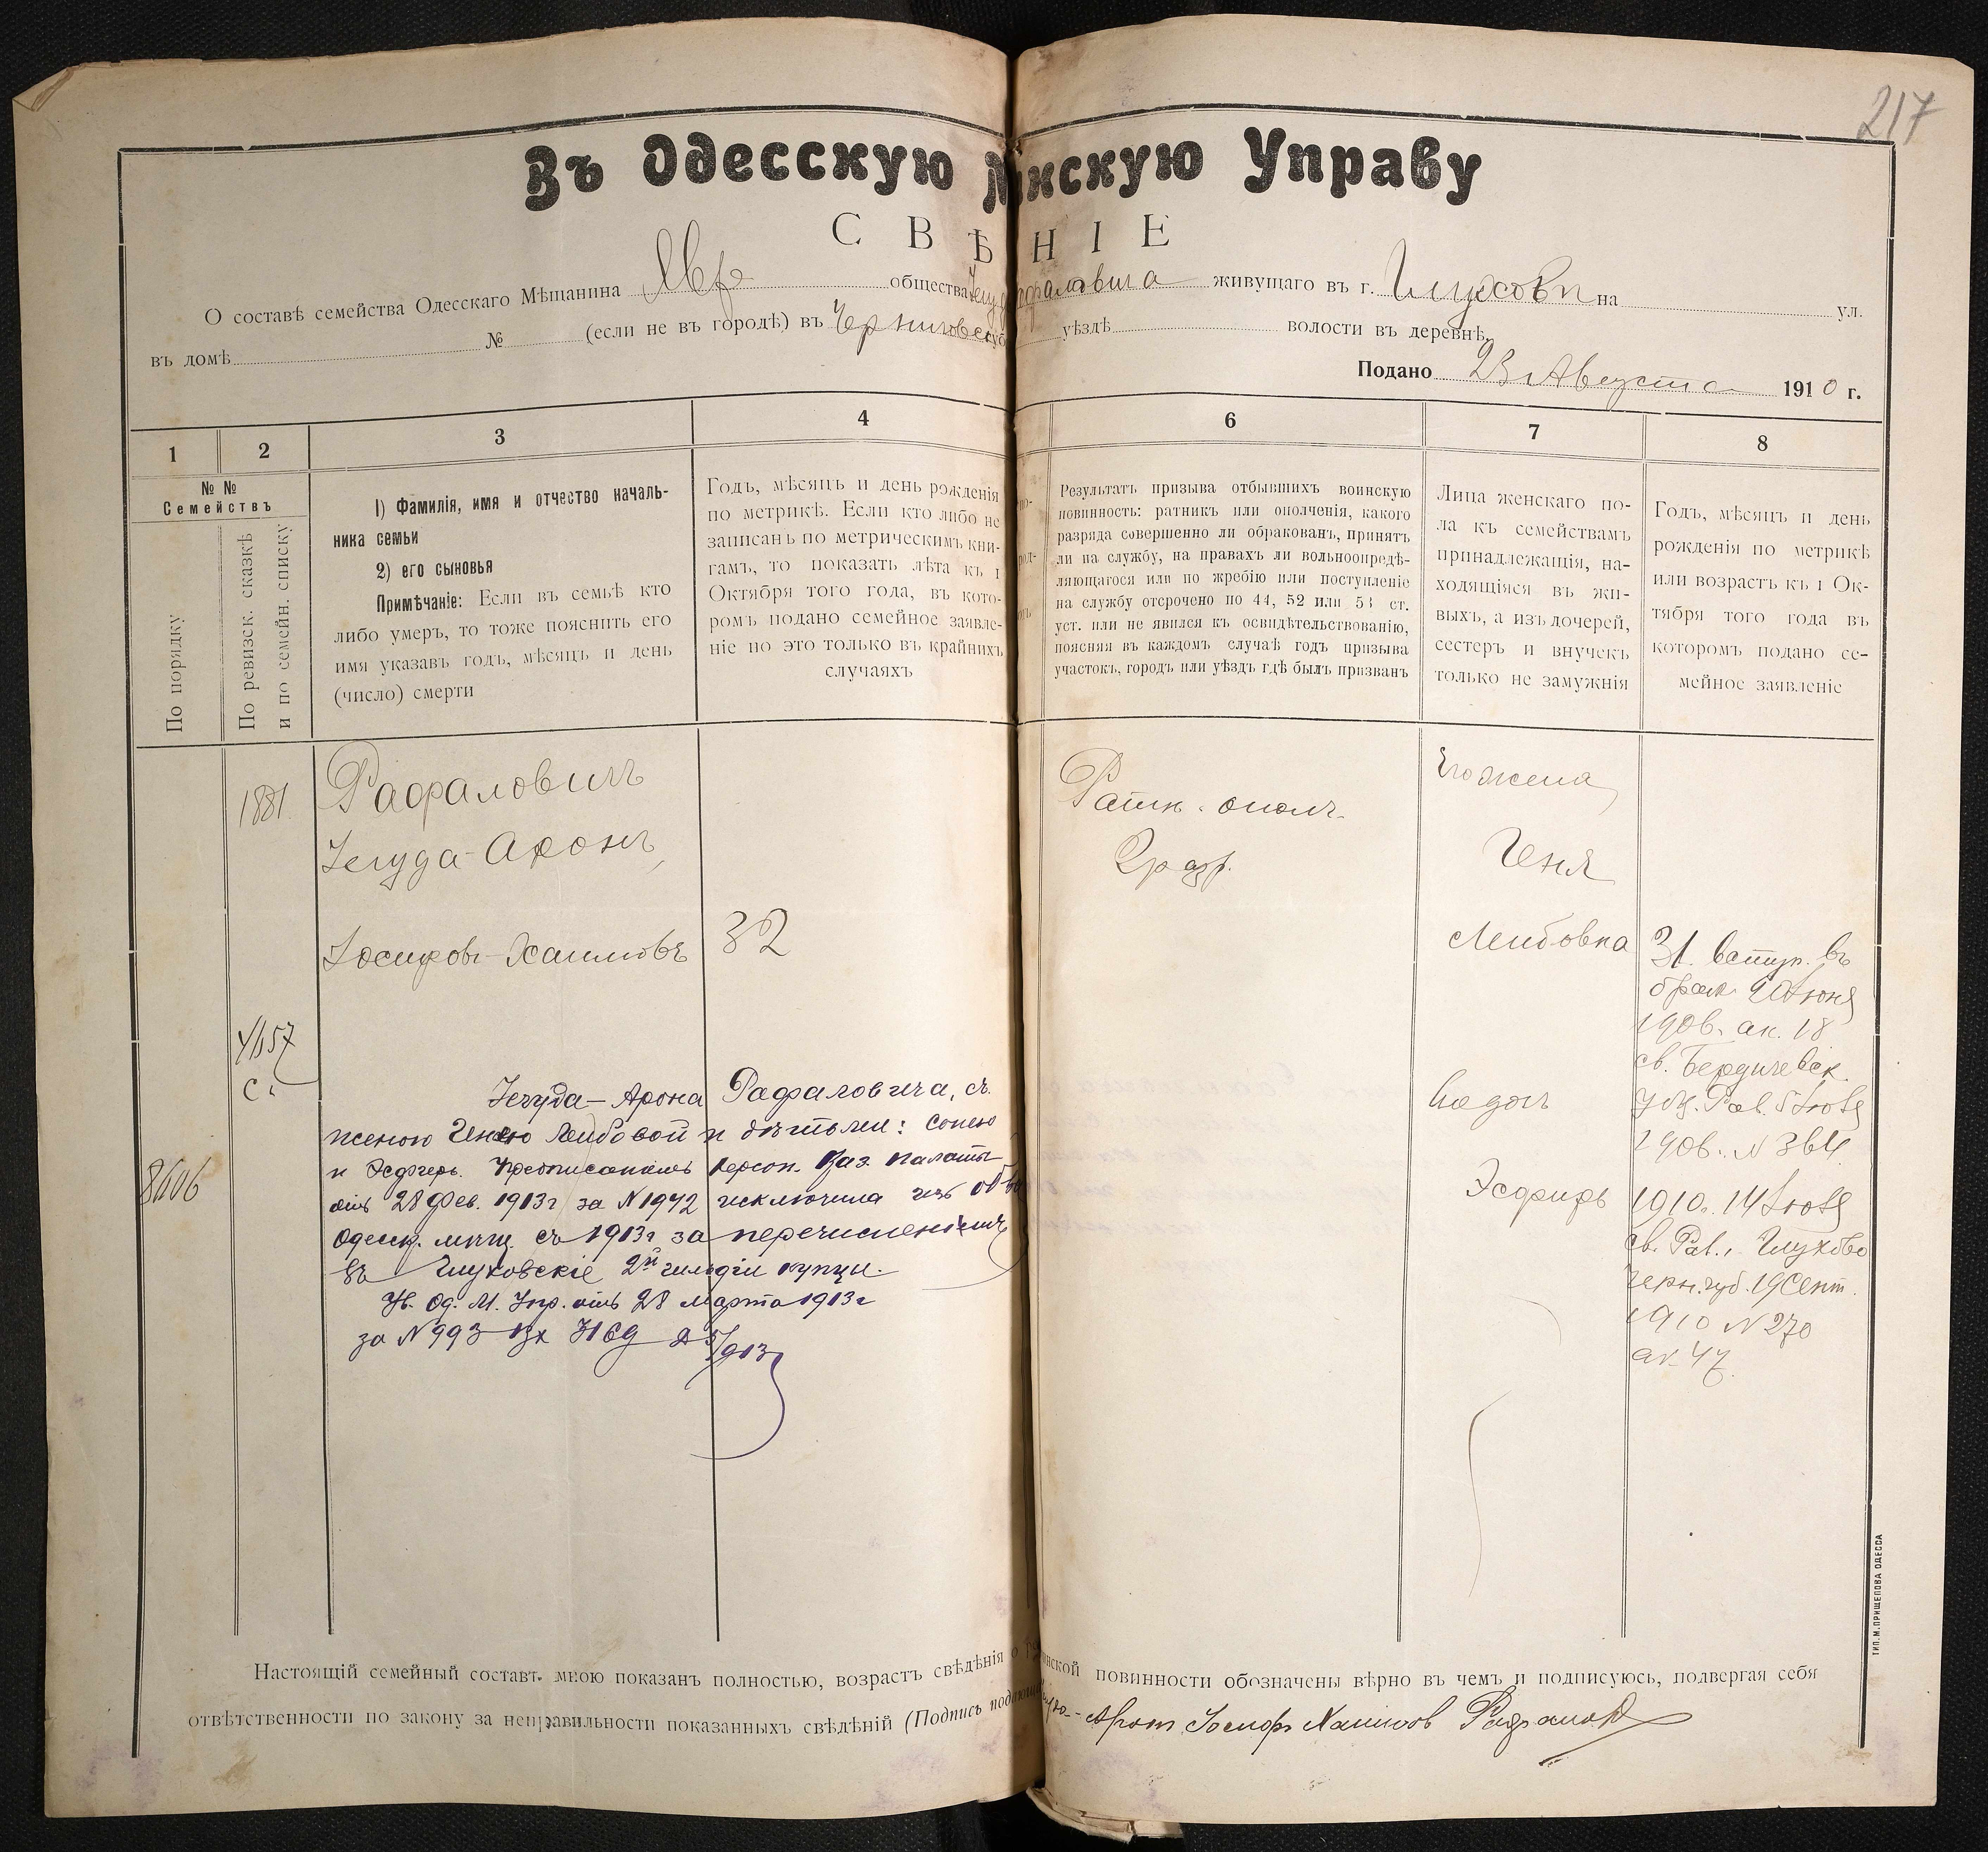 217
Въ Одесскую М нскую Управу
СВѢ НІЕ
О составѣ семейства Одесскаго Мѣщанина Евр общества Іегуд Рафаловича живущаго въ г. Глуховѣ на ул.
въ домѣ № (если не въ городѣ) въ Черниговск губ уѣздѣ волости въ деревнѣ
Подано 23 Августа 1910 г.
1 2 3 4 6 7 8
№ №
Семействъ
По порядку
По ревизск. сказкѣ
и по семейн. списку
1) Фамилія, имя и отчество началь-
ника семьи
2) его сыновья
Примѣчаніе: Если въ семьѣ кто
либо умеръ, то тоже пояснить его
имя указавъ годъ, мѣсяцъ и день
(число) смерти
Годъ, мѣсяцъ и день рожденія
по метрикѣ. Если кто либо не
записанъ по метрическимъ кни-
гамъ, то показать лѣта къ 1
Октября того года, въ кото-
ромъ подано семейное заявле-
ніе но это только въ крайнихъ
случаяхъ
Результатъ призыва отбывшихъ воинскую
повинность: ратникъ или ополченія, какого
разряда совершенно ли обракованъ, принятъ
ли на службу, на правахъ ли вольноопредѣ-
ляющагося или по жребію или поступленіе
на службу отсрочено по 44, 52 или 53 ст.
уст. или не явился къ освидѣтельствованію,
поясняя въ каждомъ случаѣ годъ призыва
участокъ, городъ или уѣздъ гдѣ былъ призванъ
Лица женскаго по-
ла къ семействамъ
принадлежащія, на-
ходящіяся въ жи-
выхъ, а изъ дочерей,
сестеръ и внучекъ
только не замужнія
Годъ, мѣсяцъ и день
рожденія по метрикѣ
или возрастъ къ 1 Ок-
тября того года въ
которомъ подано се-
мейное заявленіе
1881
Рафаловичъ
Іегуда-Аронъ
Іосифовъ-Хаимовъ
32
4157
с.
8606
Іегуда-Арона Рафаловича, съ
женою Генею Лейбовой и дѣтьми: Сонею
и Эсфирь. Предписаніемъ Херсон. Каз. Палаты
отъ 28 Фев. 1913 г за N 1942 исключила изъ об
Одесск. мѣщ. съ 1913 г за перечисленіемъ
въ Глуховскіе 2й гильдіи купцы.
Ув. Од. М. Упр. отъ 28 марта 1913 г
за N 993 Вх 3169 /913
Ратн. ополч.
2 разр.
Его жена
Геня
Лейбовна
31. вступ. въ
брак. 20 Іюня
1906. ак. 18
св. Бердичевск.
Рав. 5 Іюля
1906. N 364
Эсфирь
1910. 14 Іюля
св. Рав. г. Глухово
Черн. губ. 19 Сент.
1910 N 270
ак. 47.
Настоящій семейный составъ мною показанъ полностью, возрастъ свѣдѣнія о нской повинности обозначены вѣрно въ чемъ и подписуюсь, подвергая себя
отвѣтственности по закону за неправильности показанныхъ свѣдѣній (Подпись Арон Іосиф Хаимов Рафалов
ТИП. М. ПРИЩЕПОВА ОДЕССА